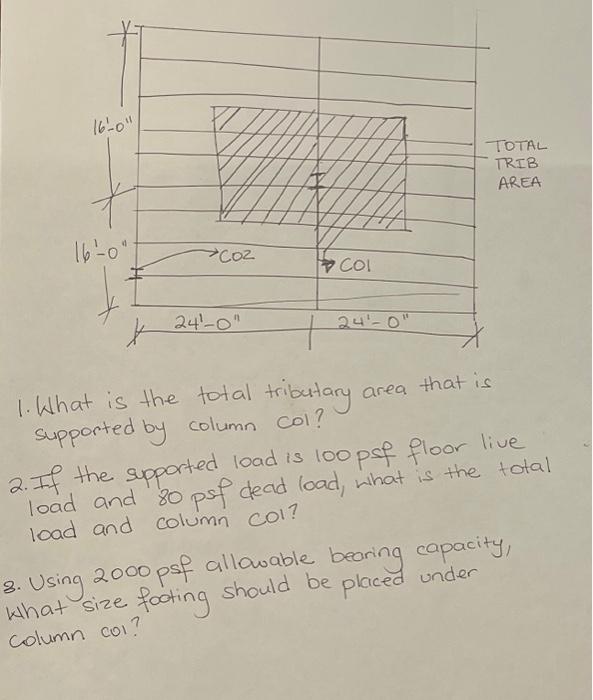 16'-0"
TOTAL
TRIB
AREA
16'-0"
CO2
CO1
24'-0"
24'-0"
1. What is the total tributary area that is
supported by column CO1?
2. If the supported load is 100 psf floor live
load and 80 psf dead load, what is the total
load and column CO1?
3. Using 2000 psf allowable bearing capacity,
What size footing should be placed under
Column CO1?